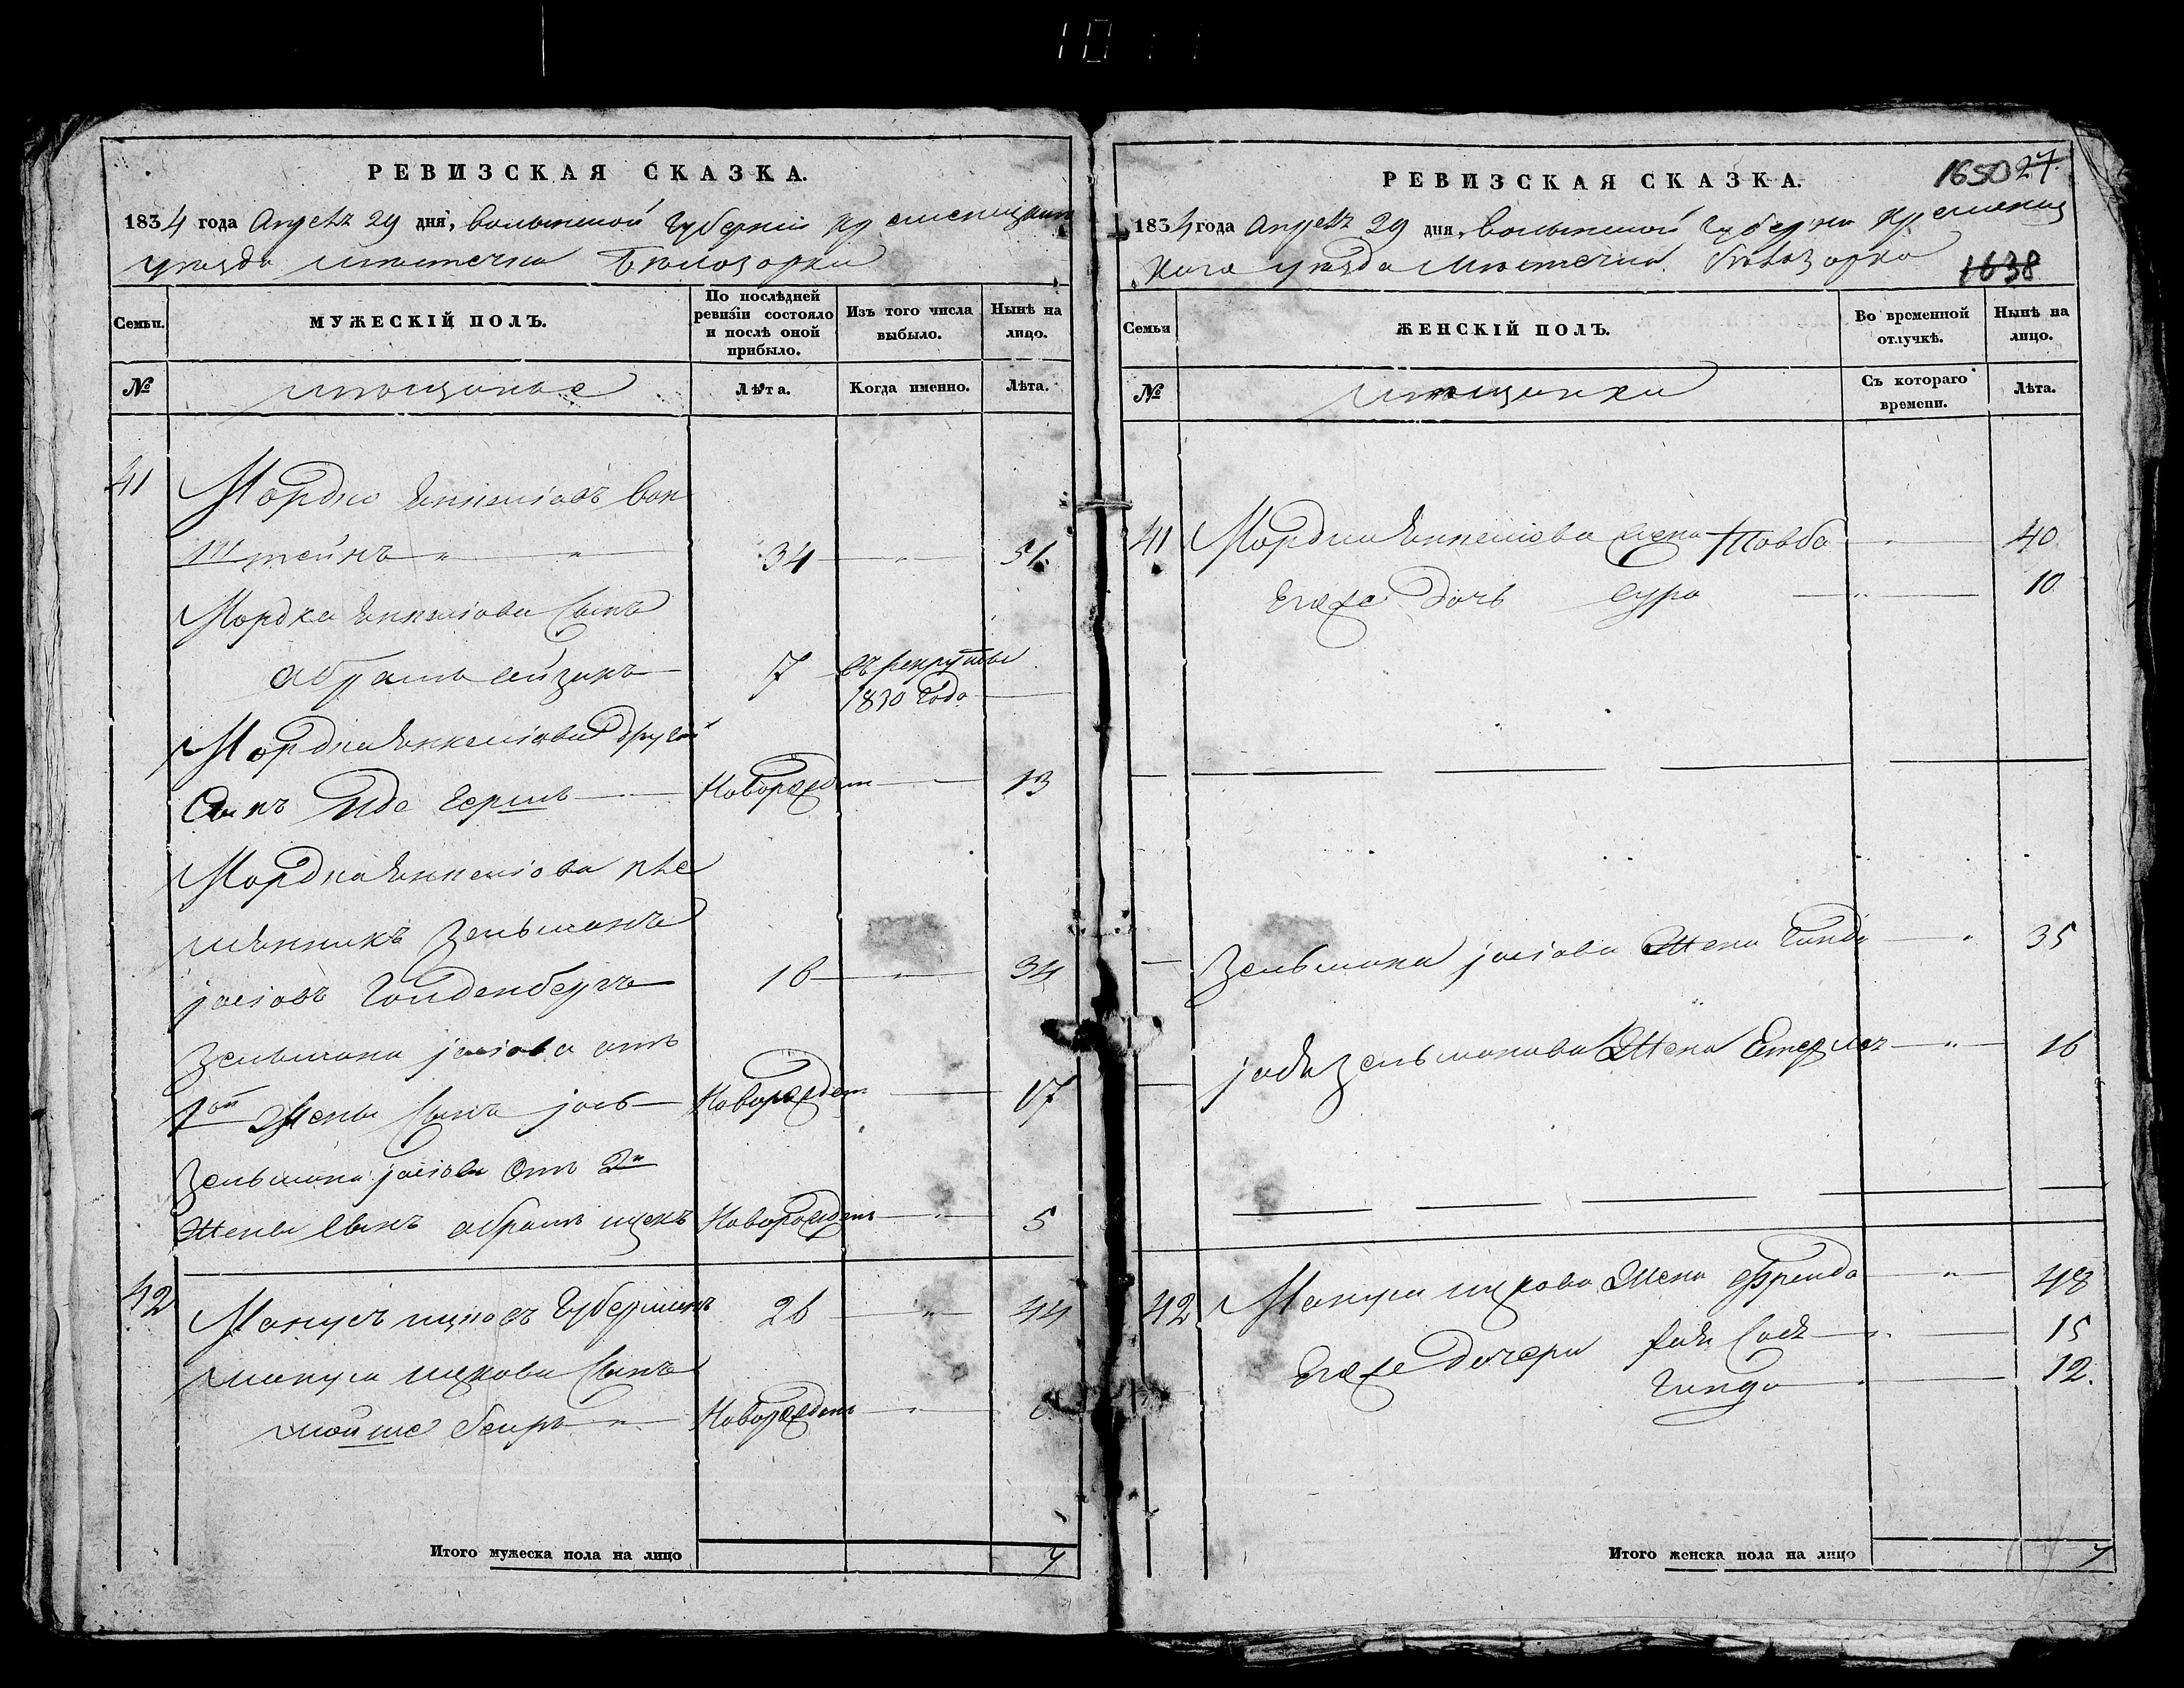 РЕВИЗСКАЯ СКАЗКА.
1834 года Апреля 29 дня, Волынской Губернии Кременецкаго
уезда местечка Белозорки
Семьи.
МУЖЕСКІЙ ПОЛЪ.
По послѣдней ревизіи состояло и послѣ оной прибыло.
Изъ того числа выбыло.
Нынѣ на лицо.
№
мещане
Лѣта.
Когда именно.
Лѣта.
41
Мордко Янкелiовъ Вон
штейнъ 34 51.
Мордка Янкелiова Сынъ
Абрамъ Айзикъ 17 въ рекруты
1830 Года
Мордка Янкелiова другой
Сынъ Иде Гершъ Новорожден 13
Мордка Янкелiова пле
мянникъ Зельманъ
Iосiовъ Голденбергъ 16 34
Зельмана Iосiова отъ
1ой Жены Сынъ Iось Новорожден 17
Зельмана Iосiова Отъ 2й
Жены Сынъ Абрамъ Ицекъ Новорожден 5
42
Манусъ Ицковъ Губерманъ 26 44
Мануса Ицкова Сынъ
Мойше Беиръ Новорожден
Итого мужеска пола на лицо 7
РЕВИЗСКАЯ СКАЗКА.
1650 27.
1834 года Апреля 29 дня, Волынской Губернии Кременец
каго уезда Местечка Белозорка
1638
Семьи
ЖЕНСКІЙ ПОЛЪ.
Во временной отлучкѣ.
Нынѣ на лицо.
№
мещанки
Съ котораго времени.
Лѣта.
41 Мордка Янкелiова жена Товба 40
Егоже Дочь Сура 10
Зельмана Iосiова Жена Гинда 35
Iося Зельманова Жена Естерлея 16
42 Мануса Ицкова Жена Фрейда 48
Егоже Дочери 15
Гинда 12.
Итого женска пола на лицо 7